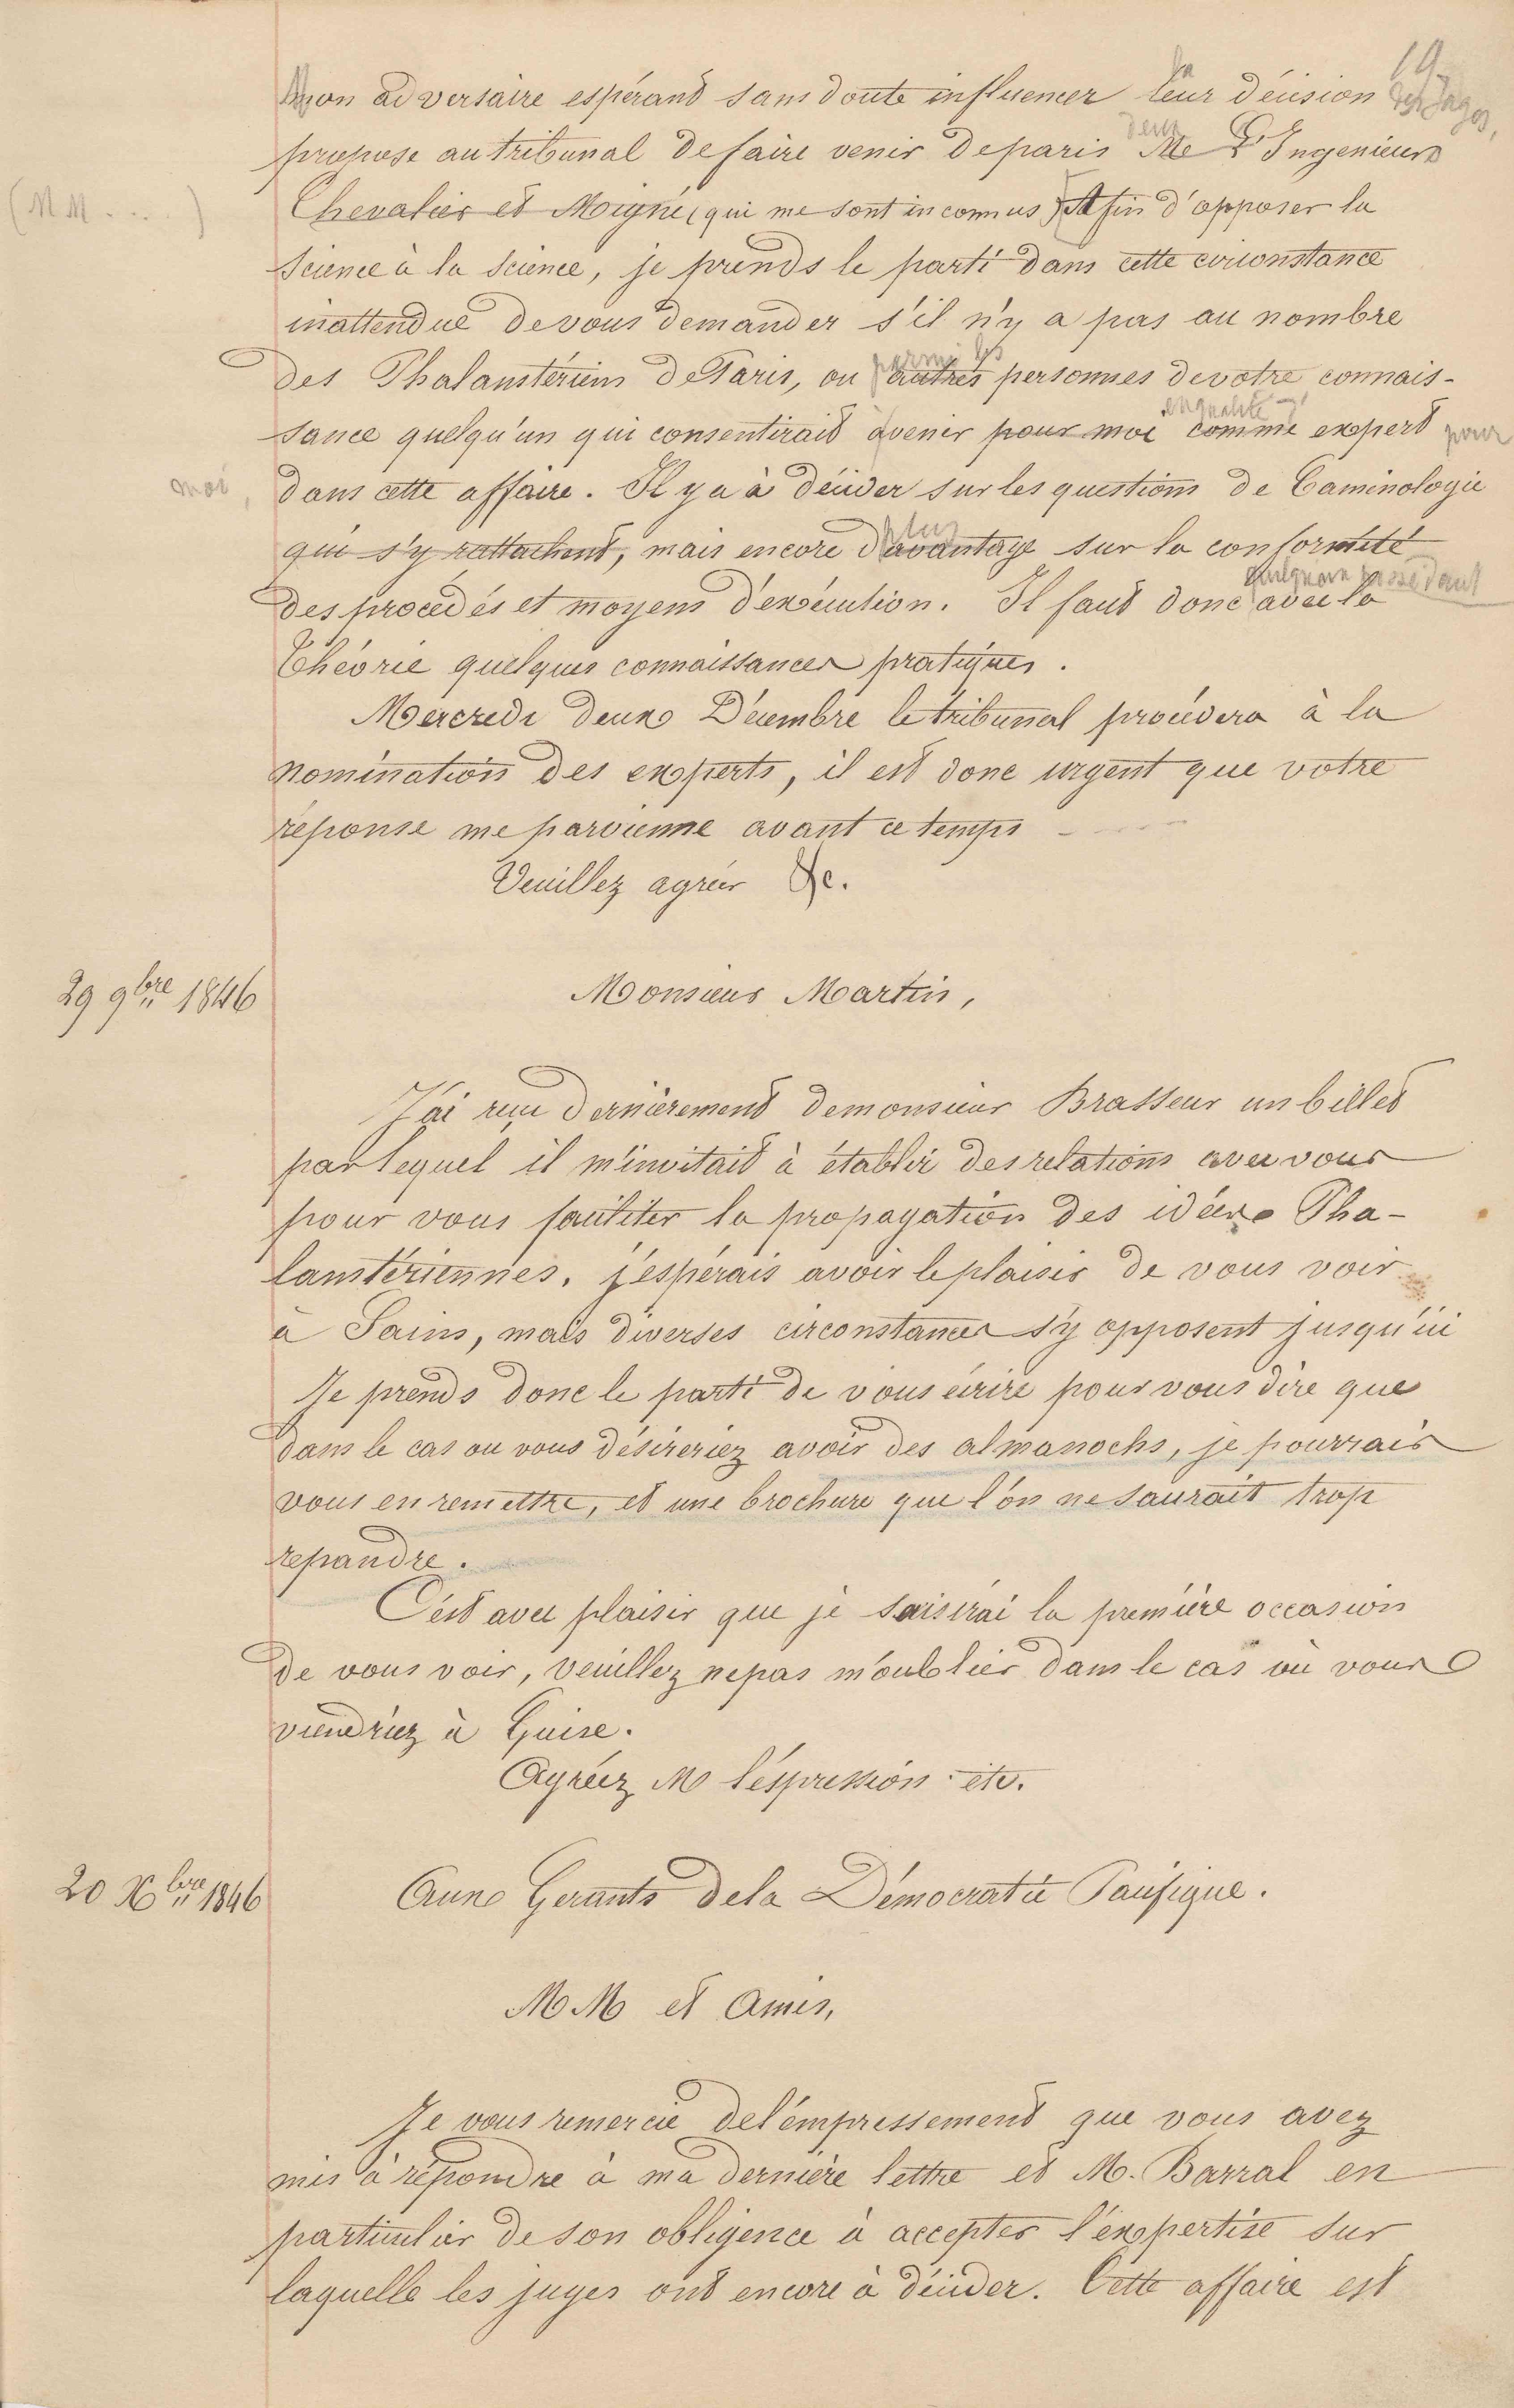 19
Mon adversaire espérant sans doute influencer leur décision
la
des Juges,
propose au tribunal de faire venir de paris Me L'Ingenieurs
deux
(MM... )
Chevalier et Moigne (qui me sont inconnus) Afin d'opposer la
Science à la Science, je prends le parti dans cette circonstance
inattendue de vous demander s'il n'y a pas au nombre
des Phalanstériens de Paris, ou autres personnes de votre connais-
parmi les
sance quelqu'un qui consentirait à venir pour moi comme expert
en qualité d'
pour
moi,
dans cette affaire. Il y a à décider sur les questions de Caminologie
qui s'y rattachent, mais encore davantage sur la conformité
plus
des procédés et moyens d'exécution. Il faut donc avec la
quelqu'un possédant
Théorie quelques connaissances pratiques.
Mercredi deux Décembre le tribunal procédera à la
nomination des experts, il est donc urgent que votre
réponse me parvienne avant ce temps
Veuillez agréer &c.
29 9bre 1846
Monsieur Martin,
J'ai reçu dernièrement de monsieur Brasseur un billet
par lequel il m'invitait à établir des relations avec vous
pour vous faciliter la propagation des idées Pha-
lanstériennes. j'espérais avoir le plaisir de vous voir
à Sains, mais diverses circonstances s'y opposent jusqu'ici
Je prends donc le parti de vous écrire pour vous dire que
dans le cas ou vous désireriez avoir des almanachs, je pourrais
vous en remettre, et une brochure que l'on ne saurait trop
repandre.
C'est avec plaisir que je saisirai la première occasion
de vous voir, veuillez ne pas m'oublier dans le cas où vous
viendriez à Guise.
Agréez M l'éxpression etc.
20 Xbre 1846
Aux Gerants de la Démocratie Pacifique.
MM et Amis,
Je vous remercie de l'empressement que vous avez
mis à répondre à ma dernière lettre et M. Barral en
particulier de son obligence à accepter l'expertise sur
laquelle les juges ont encore à décider. Cette affaire est